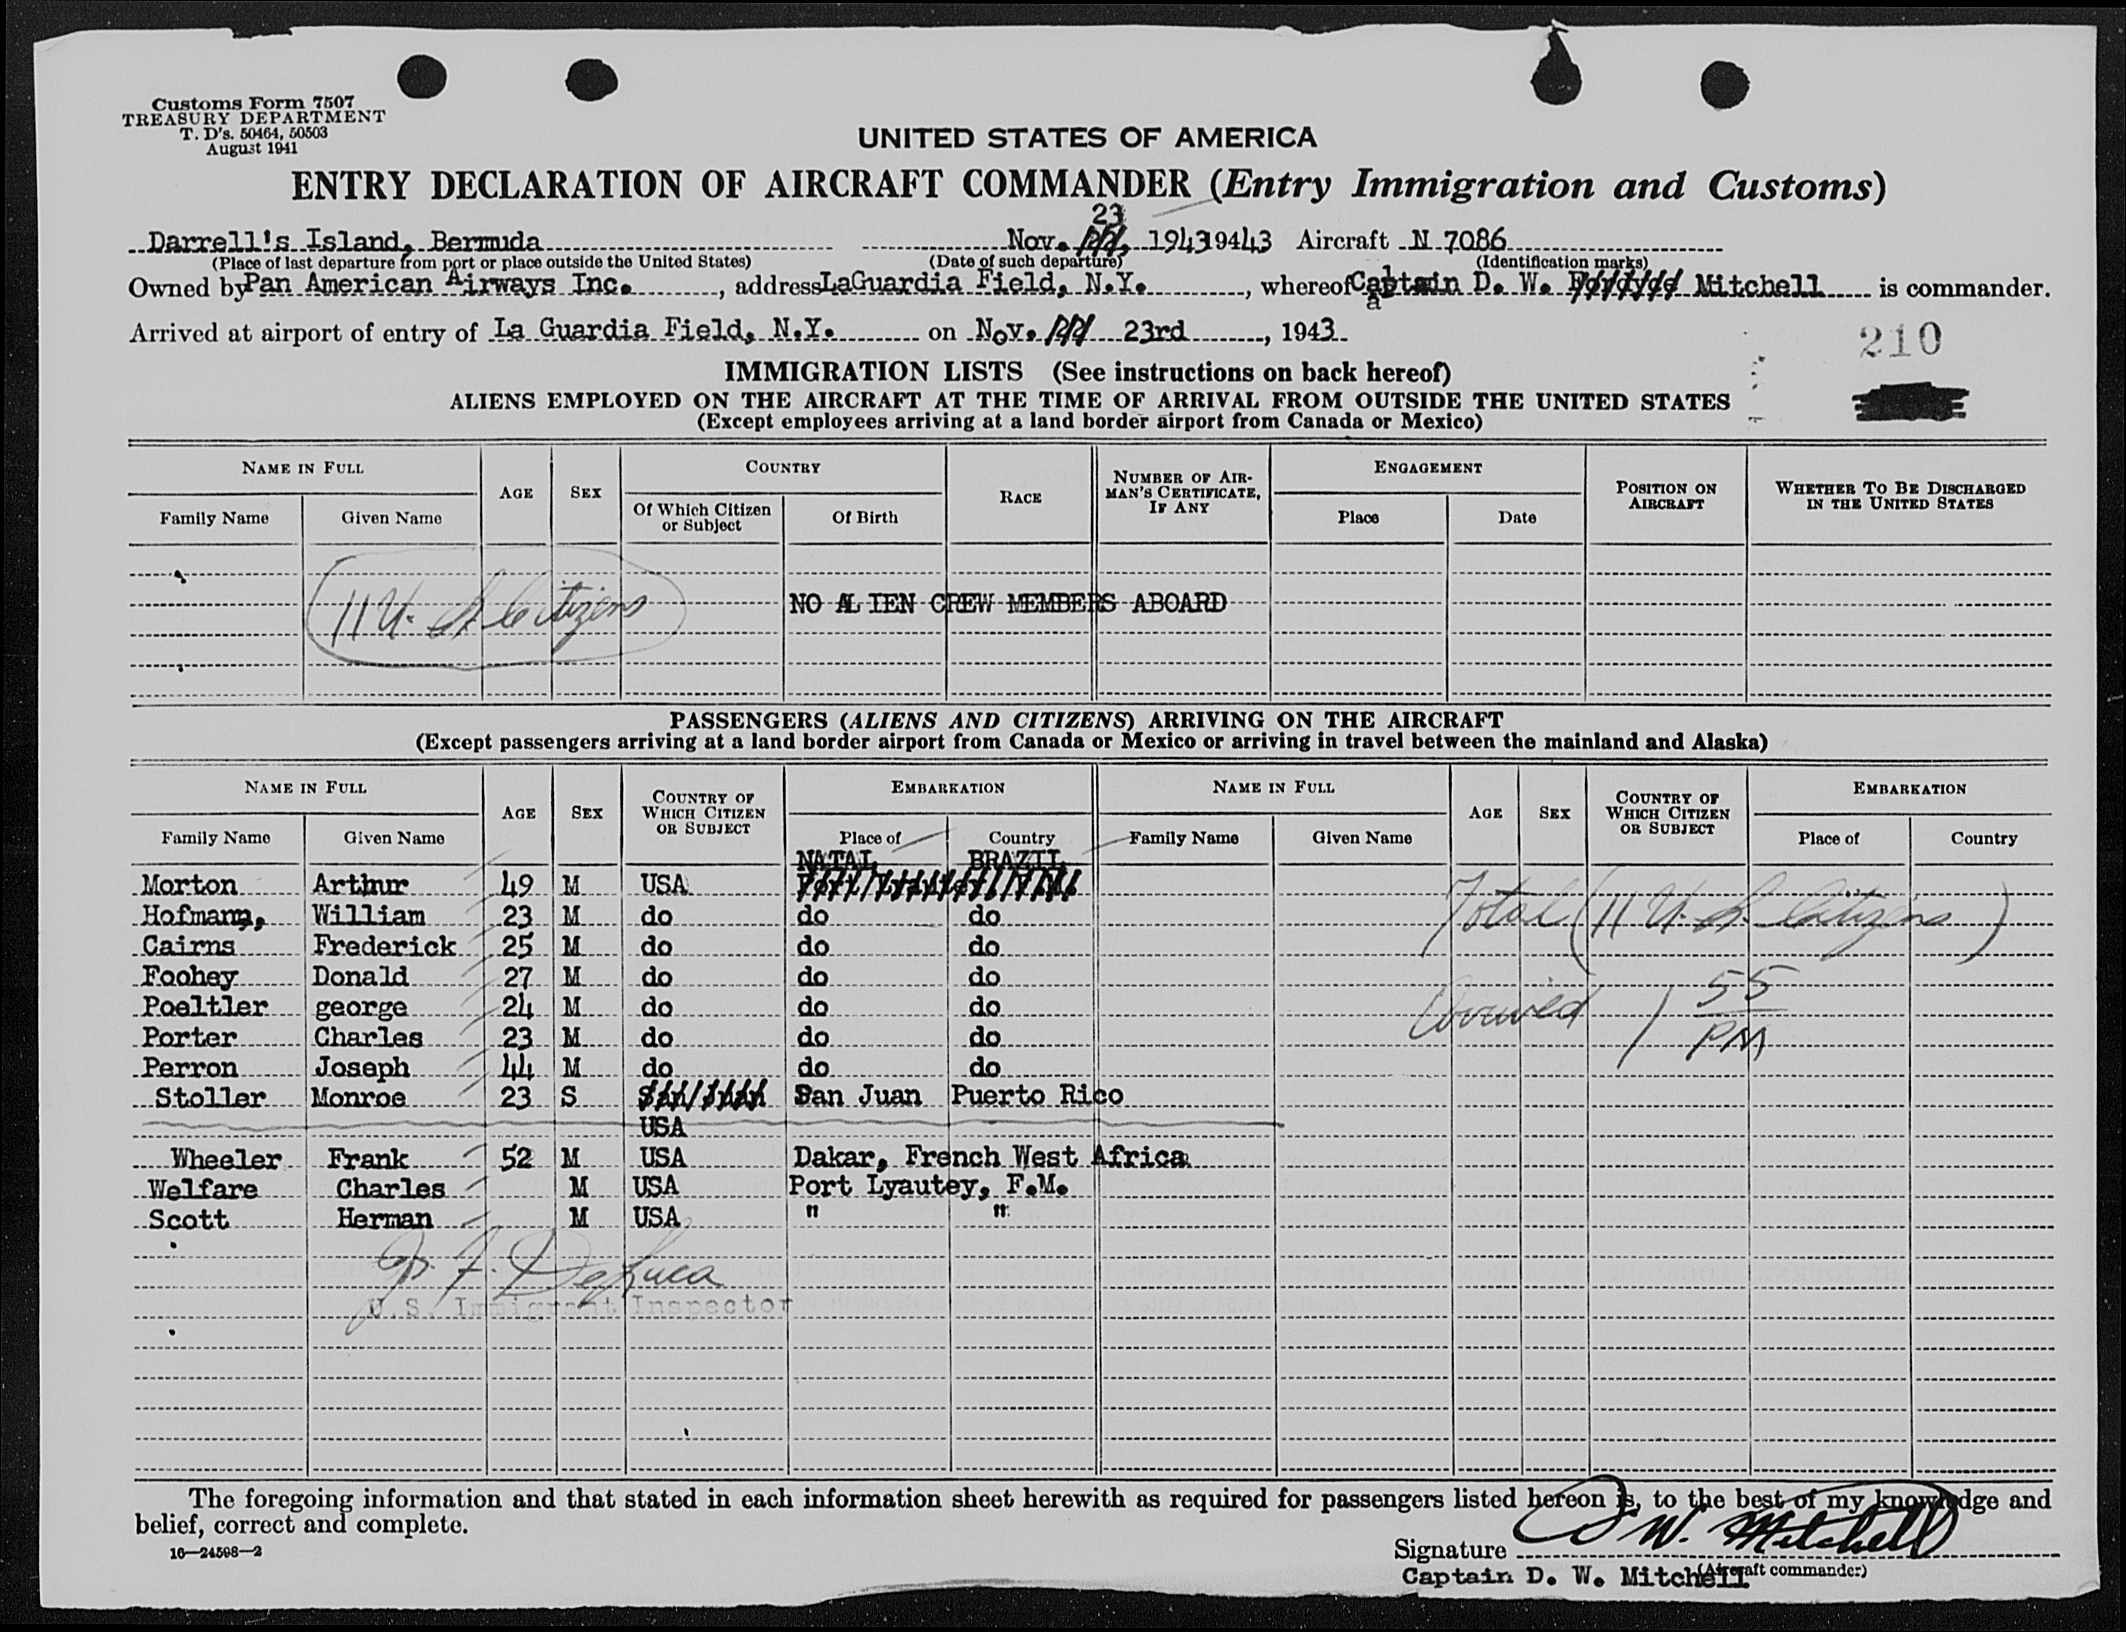 Customs Form 7507
TREASURY DEPARTMENT
T. D's. 50464, 50503
August 1941
UNITED STATES OF AMERICA
ENTRY DECLARATION OF AIRCRAFT COMMANDER (Entry Immigration and Customs)
23
Darrell's Island, Bermuda Nov. 1943 1943 Aircraft N 7086
(Place of last departure from port or place outside the United States) (Date of such departure) (Identification marks)
Owned by Pan American Airways Inc. , address LaGuardia Field, N.Y. , whereof Captain D. W. Mitchell is commander.
Arrived at airport of entry of La Guardia Field, N.Y. on Nov. 23rd , 1943
210
IMMIGRATION LISTS (See instructions on back hereof)
ALIENS EMPLOYED ON THE AIRCRAFT AT THE TIME OF ARRIVAL FROM OUTSIDE THE UNITED STATES
(Except employees arriving at a land border airport from Canada or Mexico)
NAME IN FULL AGE SEX COUNTRY RACE NUMBER OF AIRMAN'S CERTIFICATE, IF ANY ENGAGEMENT POSITION ON AIRCRAFT WHETHER TO BE DISCHARGED IN THE UNITED STATES
Family Name Given Name Of Which Citizen or Subject Of Birth Place Date
11 U. S. Citizens NO ALIEN CREW MEMBERS ABOARD
PASSENGERS (ALIENS AND CITIZENS) ARRIVING ON THE AIRCRAFT
(Except passengers arriving at a land border airport from Canada or Mexico or arriving in travel between the mainland and Alaska)
NAME IN FULL AGE SEX COUNTRY OF WHICH CITIZEN OR SUBJECT EMBARKATION NAME IN FULL AGE SEX COUNTRY OF WHICH CITIZEN OR SUBJECT EMBARKATION
Family Name Given Name Place of Country Family Name Given Name Place of Country
NATAL BRAZIL
Morton Arthur 49 M USA
Hofmann, William 23 M do do do Total (11 U. S. Citizens)
Cairns Frederick 25 M do do do
Foohey Donald 27 M do do do
Poeltler george 24 M do do do Arrived 1 55 PM
Porter Charles 23 M do do do
Perron Joseph 44 M do do do
Stoller Monroe 23 S San Juan Puerto Rico
USA
Wheeler Frank 52 M USA Dakar, French West Africa
Welfare Charles M USA Port Lyautey, F.M.
Scott Herman M USA " "
J. F. DeLuca
U.S. Immigrant Inspector
The foregoing information and that stated in each information sheet herewith as required for passengers listed hereon is, to the best of my knowledge and
belief, correct and complete.
16—24598—2
Signature D W. Mitchell
Captain D. W. Mitchell (Aircraft commander)